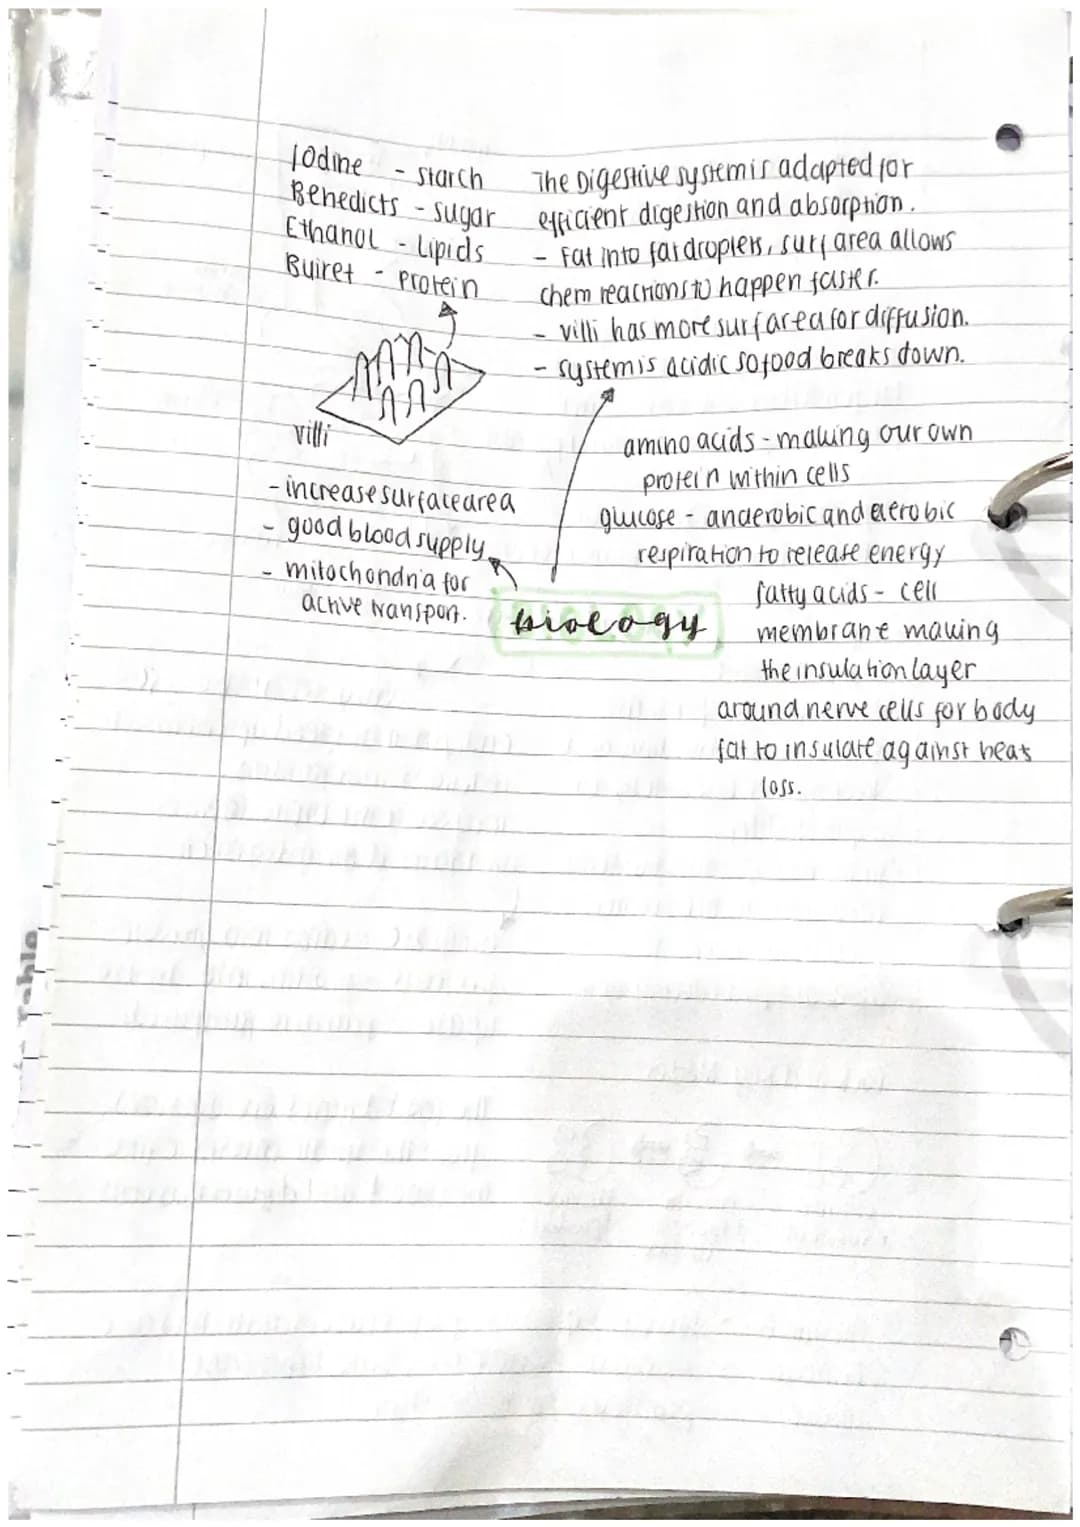 Iodine - starch
Benedicts - sugar
Ethanol - Lipids
Buiret - protein
villi
- increase surface area
- good blood supply
- mitochondria for
active transport.
The Digestive system is adapted for
efficient digestion and absorption.
- Fat into fat droplets, surf area allows
chem reactions to happen faster.
- villi has more surf area for diffusion.
- system is acidic so food breaks down.
amino acids - making our own
protein within cells
glucose - anaerobic and aerobic
respiration to release energy
fatty acids - cell
membrane making
the insulation layer
around nerve cells for body
fat to insulate against heat
loss.
biology